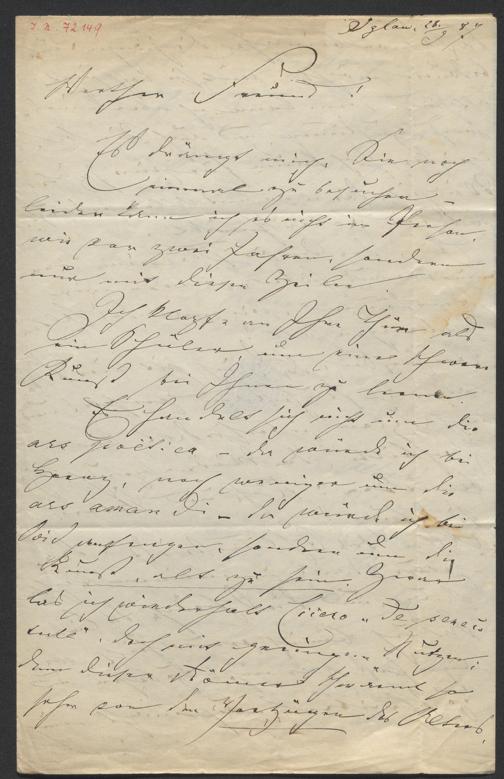 I. N. 72149
Iglau, 28./9. 87.
Werther Freund!
Es drängt mich, Sie noch
einmal zu besuchen –
leider kann ich es nicht in Person,
wie vor zwei Jahren, sondern
nur mit diesen Zeilen.
Ich klopfe an Ihre Thür als
ein Schüler, um eine schwere
Kunst bei Ihnen zu lernen.
Es handelt sich nicht um die
ars poëtica – da würde ich bei
Horaz, noch weniger um die
ars amandi – da würde ich bei
Ovid anfragen, sondern um die
Kunst, alt zu sein. Zwar
las ich wiederholt Cicero „De senec
tute“, doch mit geringem Nutzen;
denn dieser Römer schwärmt so
sehr von den Vorzügen des Alters,